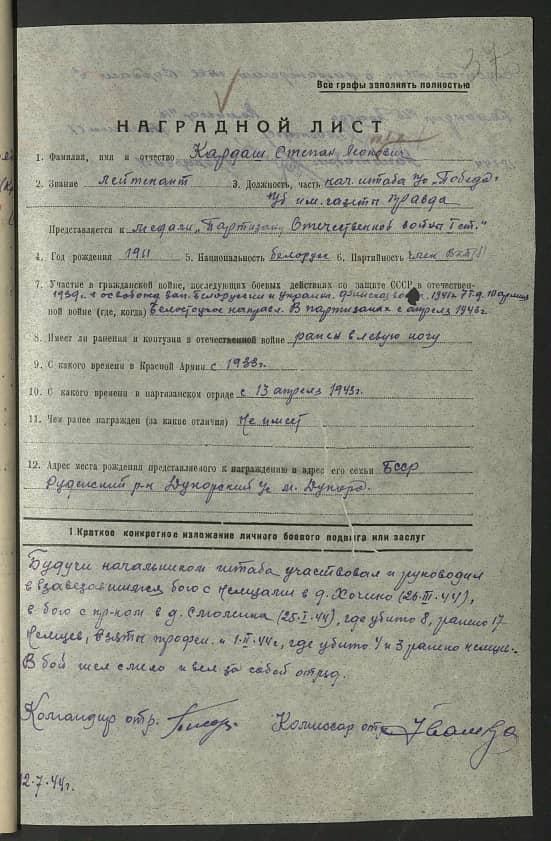 37
Все графы заполнять полностью
НАГРАДНОЙ ЛИСТ
1. Фамилия, имя и отчество Кардаш Степан
2. Звание лейтенант 3. Должность, часть нач. штаба п/о "Победа"
п/б им. газеты Правда
Представляется к медали "Партизану Отечественной войны I ст."
4. Год рождения 1911 5. Национальность белорус 6. Партийность член ВКП(б)
7. Участие в гражданской войне, последующих боевых действиях по защите СССР в отечествен-
1939 г. освобожд. зап. Белоруссии и Украины. Финская 1941 г. армия
ной войне (где, когда) Белостоцкое направл. В партизанах с апреля 1943 г.
8. Имеет ли ранения и контузии в отечественной войне ранен в левую ногу
9. С какого времени в Красной Армии с 1933 г.
10. С какого времени в партизанском отряде с 13 апреля 1943 г.
11. Чем ранее награжден (за какие отличия) Не имеет
12. Адрес места рождения представляемого к награждению и адрес его семьи БССР
Руденский р-н Дукорский с/с м. Дукора.
1 Краткое конкретное изложение личного боевого подвига или заслуг
Будучи начальником штаба участвовал и руководил
в завязавшимся бою с немцами в д. Хочино (26-III-44),
в бою с пр-ком в д. (25-I-44), где убито 8, ранено 17
немцев, взяты трофеи. и 1-II-44 г, где убито 4 и 3 ранено немцев.
В бой шел смело и вел за собой отряд.
Командир отр. Комиссар отр.
2-7-44 г.